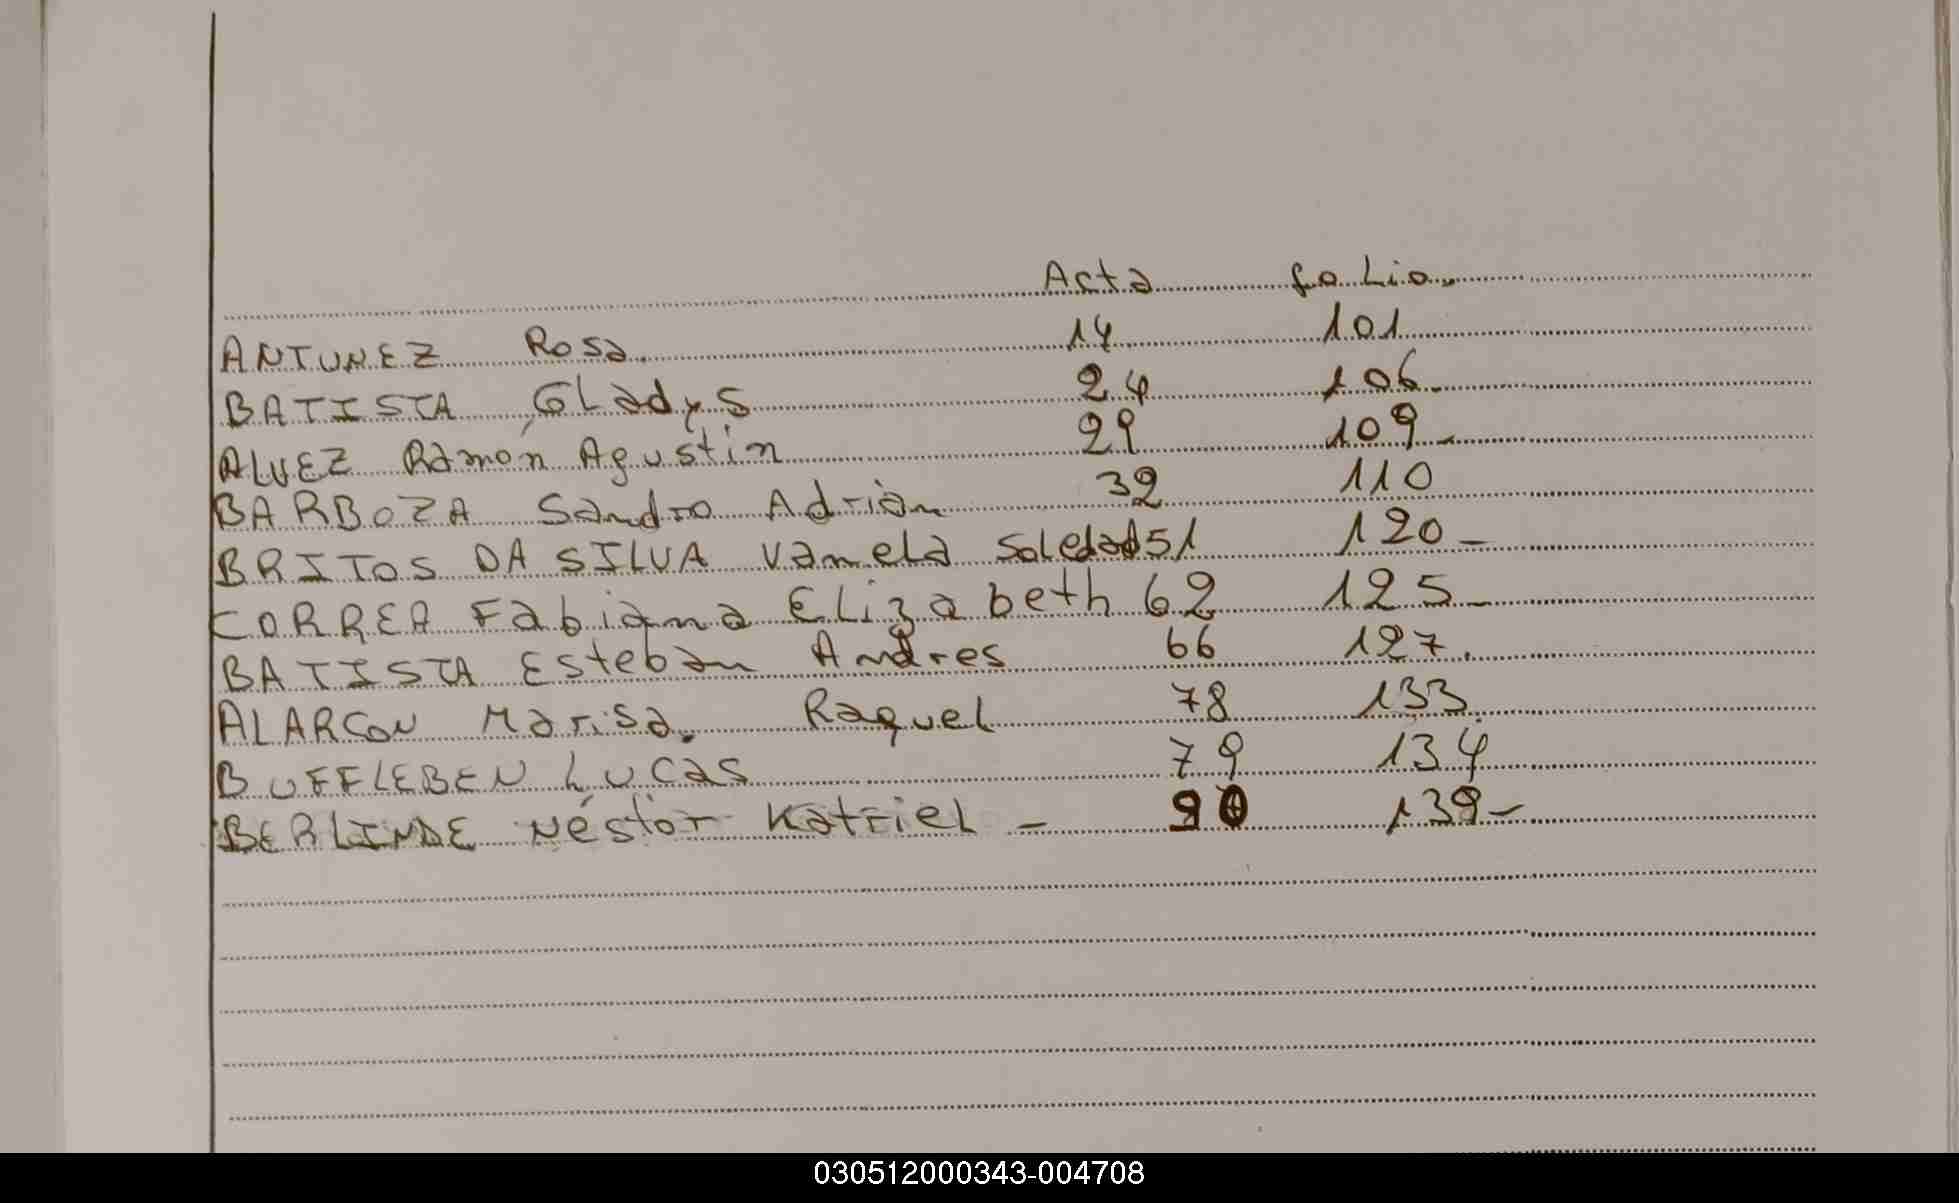 Acta folio
ANTUNEZ Rosa. 14 101
BATISTA Gladys 24 106
ALVEZ Ramón Agustín 29 109
BARBOZA Sandro Adrián 32 110
BRITOS DA SILVA Vamela Soledad 51 120
CORREA Fabiana Elizabeth 62 125
BATISTA Esteban Andres 66 127
ALARCON Marisa Raquel 78 133
BUFFLEBEN Lucas 79 134
BERLINDE Néstor Katriel 90 139
030512000343-004708